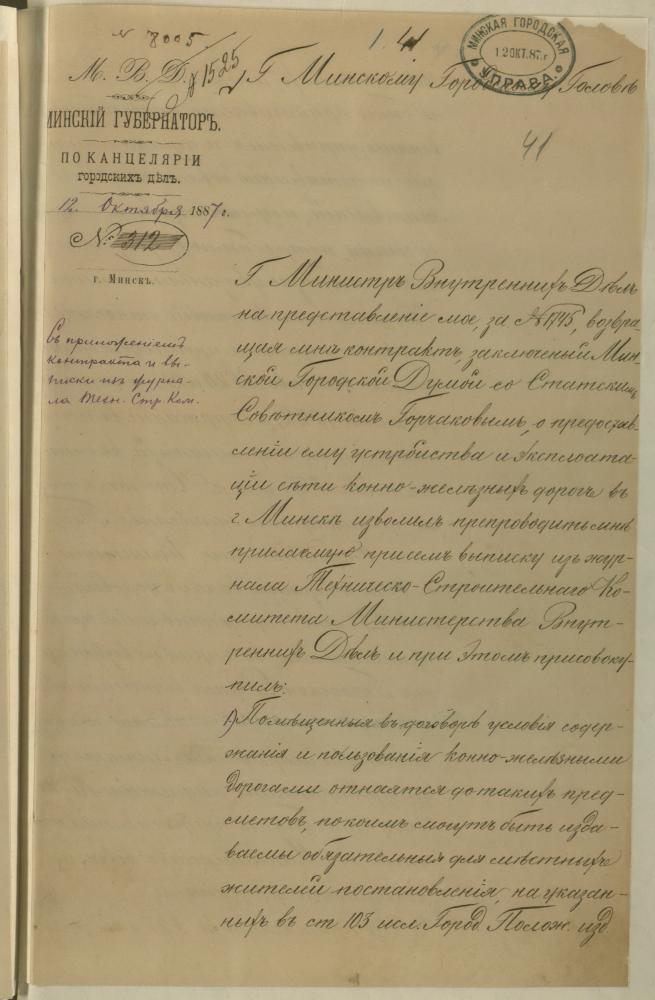 № 8005
М. В. Д.
№ 1525
МИНСКІЙ ГУБЕРНАТОРЪ.
ПО КАНЦЕЛЯРІИ
городскихъ дѣлъ.
12 Октября 1887 г.
№ 312
г. Минскъ.
Съ приложеніемъ
контракта и вы-
писки изъ журна-
ла Техн. Стр. Ком.
1. 41
МИНСКАЯ ГОРОДСКАЯ
12 ОКТ. 87 г
УПРАВА.
Г Минскому Городскому Головѣ
41
Г Министръ Внутреннихъ Дѣлъ
на представленіе мое, за № 1745, возвра-
щая мнѣ контрактъ, заключеный Мин-
ской Городской Думой со Статскимъ
Совѣтникомъ Горчаковымъ, о предостав-
леніи ему устройства и эксплоата-
ціи сѣти конно-желѣзныхъ дорогъ въ
г Минскѣ изволилъ препроводить мнѣ
прилагаемую при семъ выписку изъ жур-
нала Техническо-Строительнаго Ко-
митета Министерства Внут-
реннихъ Дѣлъ и при этомъ присовоку-
пилъ:
1) Помѣщенныя въ договорѣ условія содер-
жанія и пользованія конно-желѣзными
дорогами относятся до такихъ пред-
метовъ, по коимъ могутъ быть изда-
ваемы обязательныя для мѣстныхъ
жителей постановленія, на указан-
ныхъ въ ст 103 исл. Город. Полож. изд